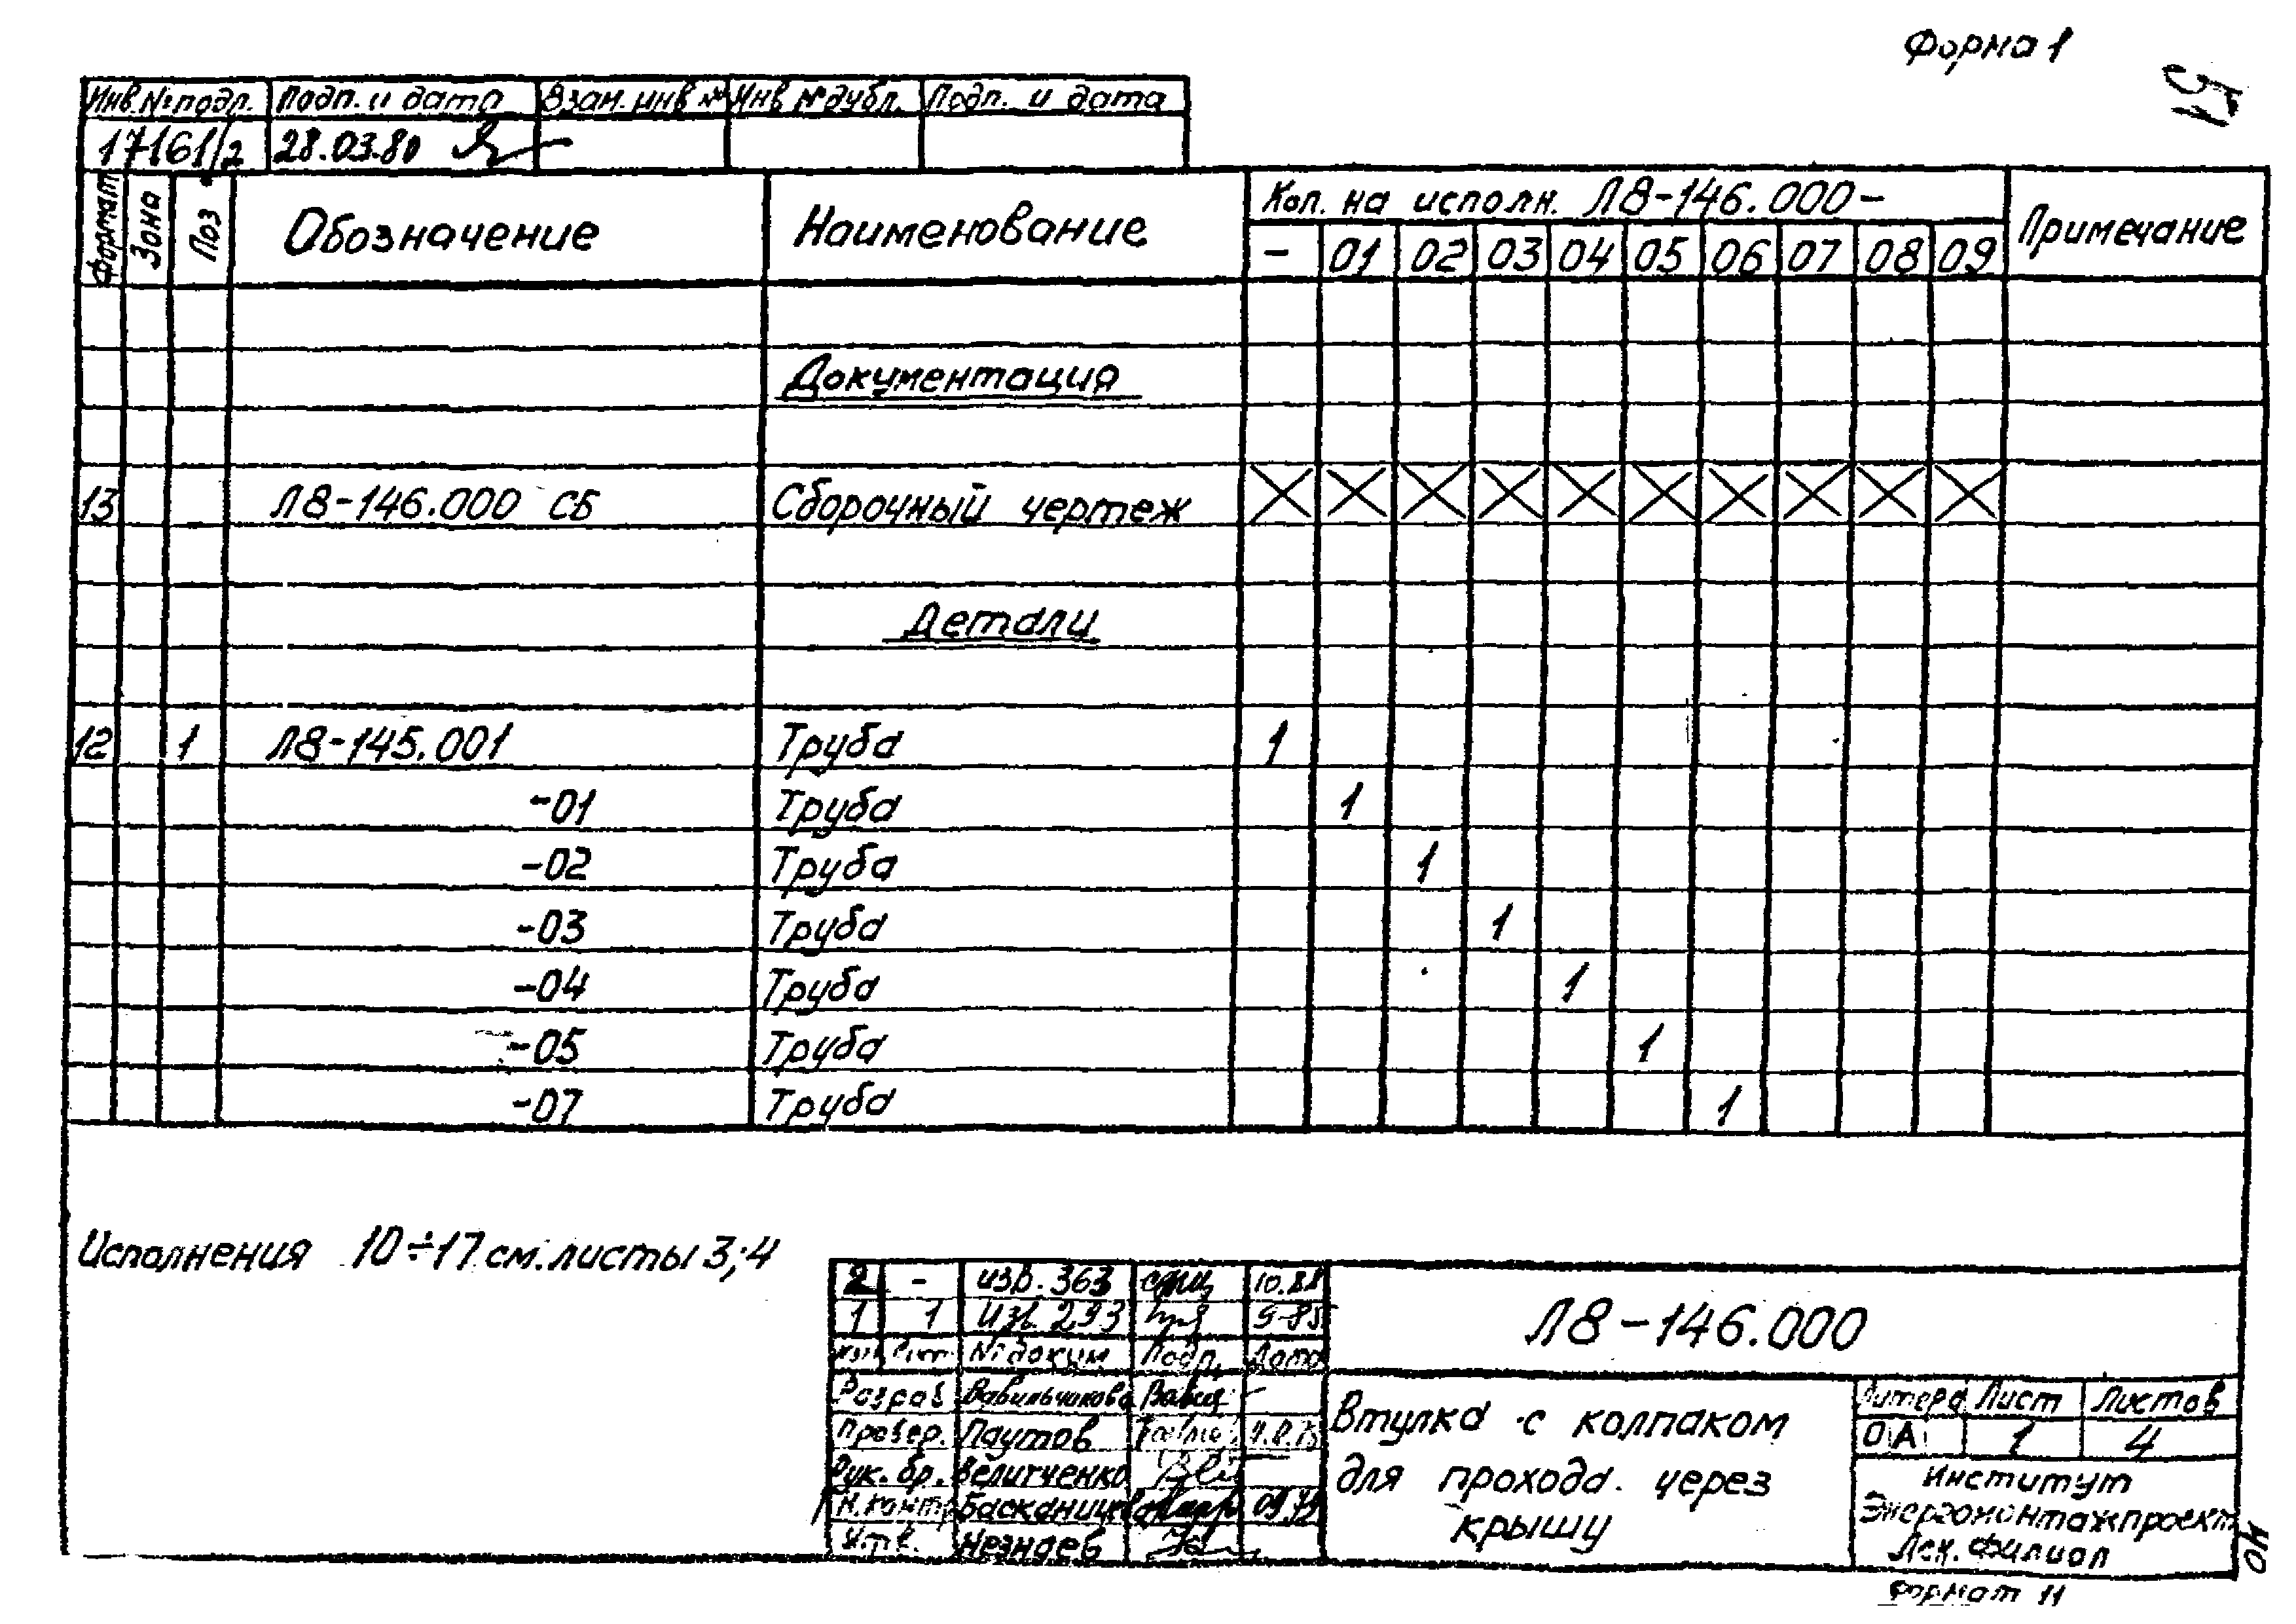 Форма 1
Инв.№подл. Подп. и дата Взам. инв № Инв № дубл. Подп. и дата
17161/2 28.03.80
Формат Зона Поз Обозначение Наименование Кол. на исполн. Л8-146.000- Примечание
- 01 02 03 04 05 06 07 08 09
Документация
13 Л8-146.000 СБ Сборочный чертеж
Детали
12 1 Л8-145.001 Труба 1
-01 Труба 1
-02 Труба 1
-03 Труба 1
-04 Труба 1
-05 Труба 1
-07 Труба 1
Исполнения 10÷17 см. листы 3;4
2 - изв. 363 10.88
1 1 Изв. 293 9-85
№ докум Подп. Дата
Л8-146.000
Разраб Вавильчикова
Провер. Паутов
Рук. бр. Величенко
Н. контр
Утв. Незнаев
Втулка с колпаком
для прохода через
крышу
Литера Лист Листов
О А 1 4
Институт
Энергомонтажпроект
Лен. филиал
Формат 11